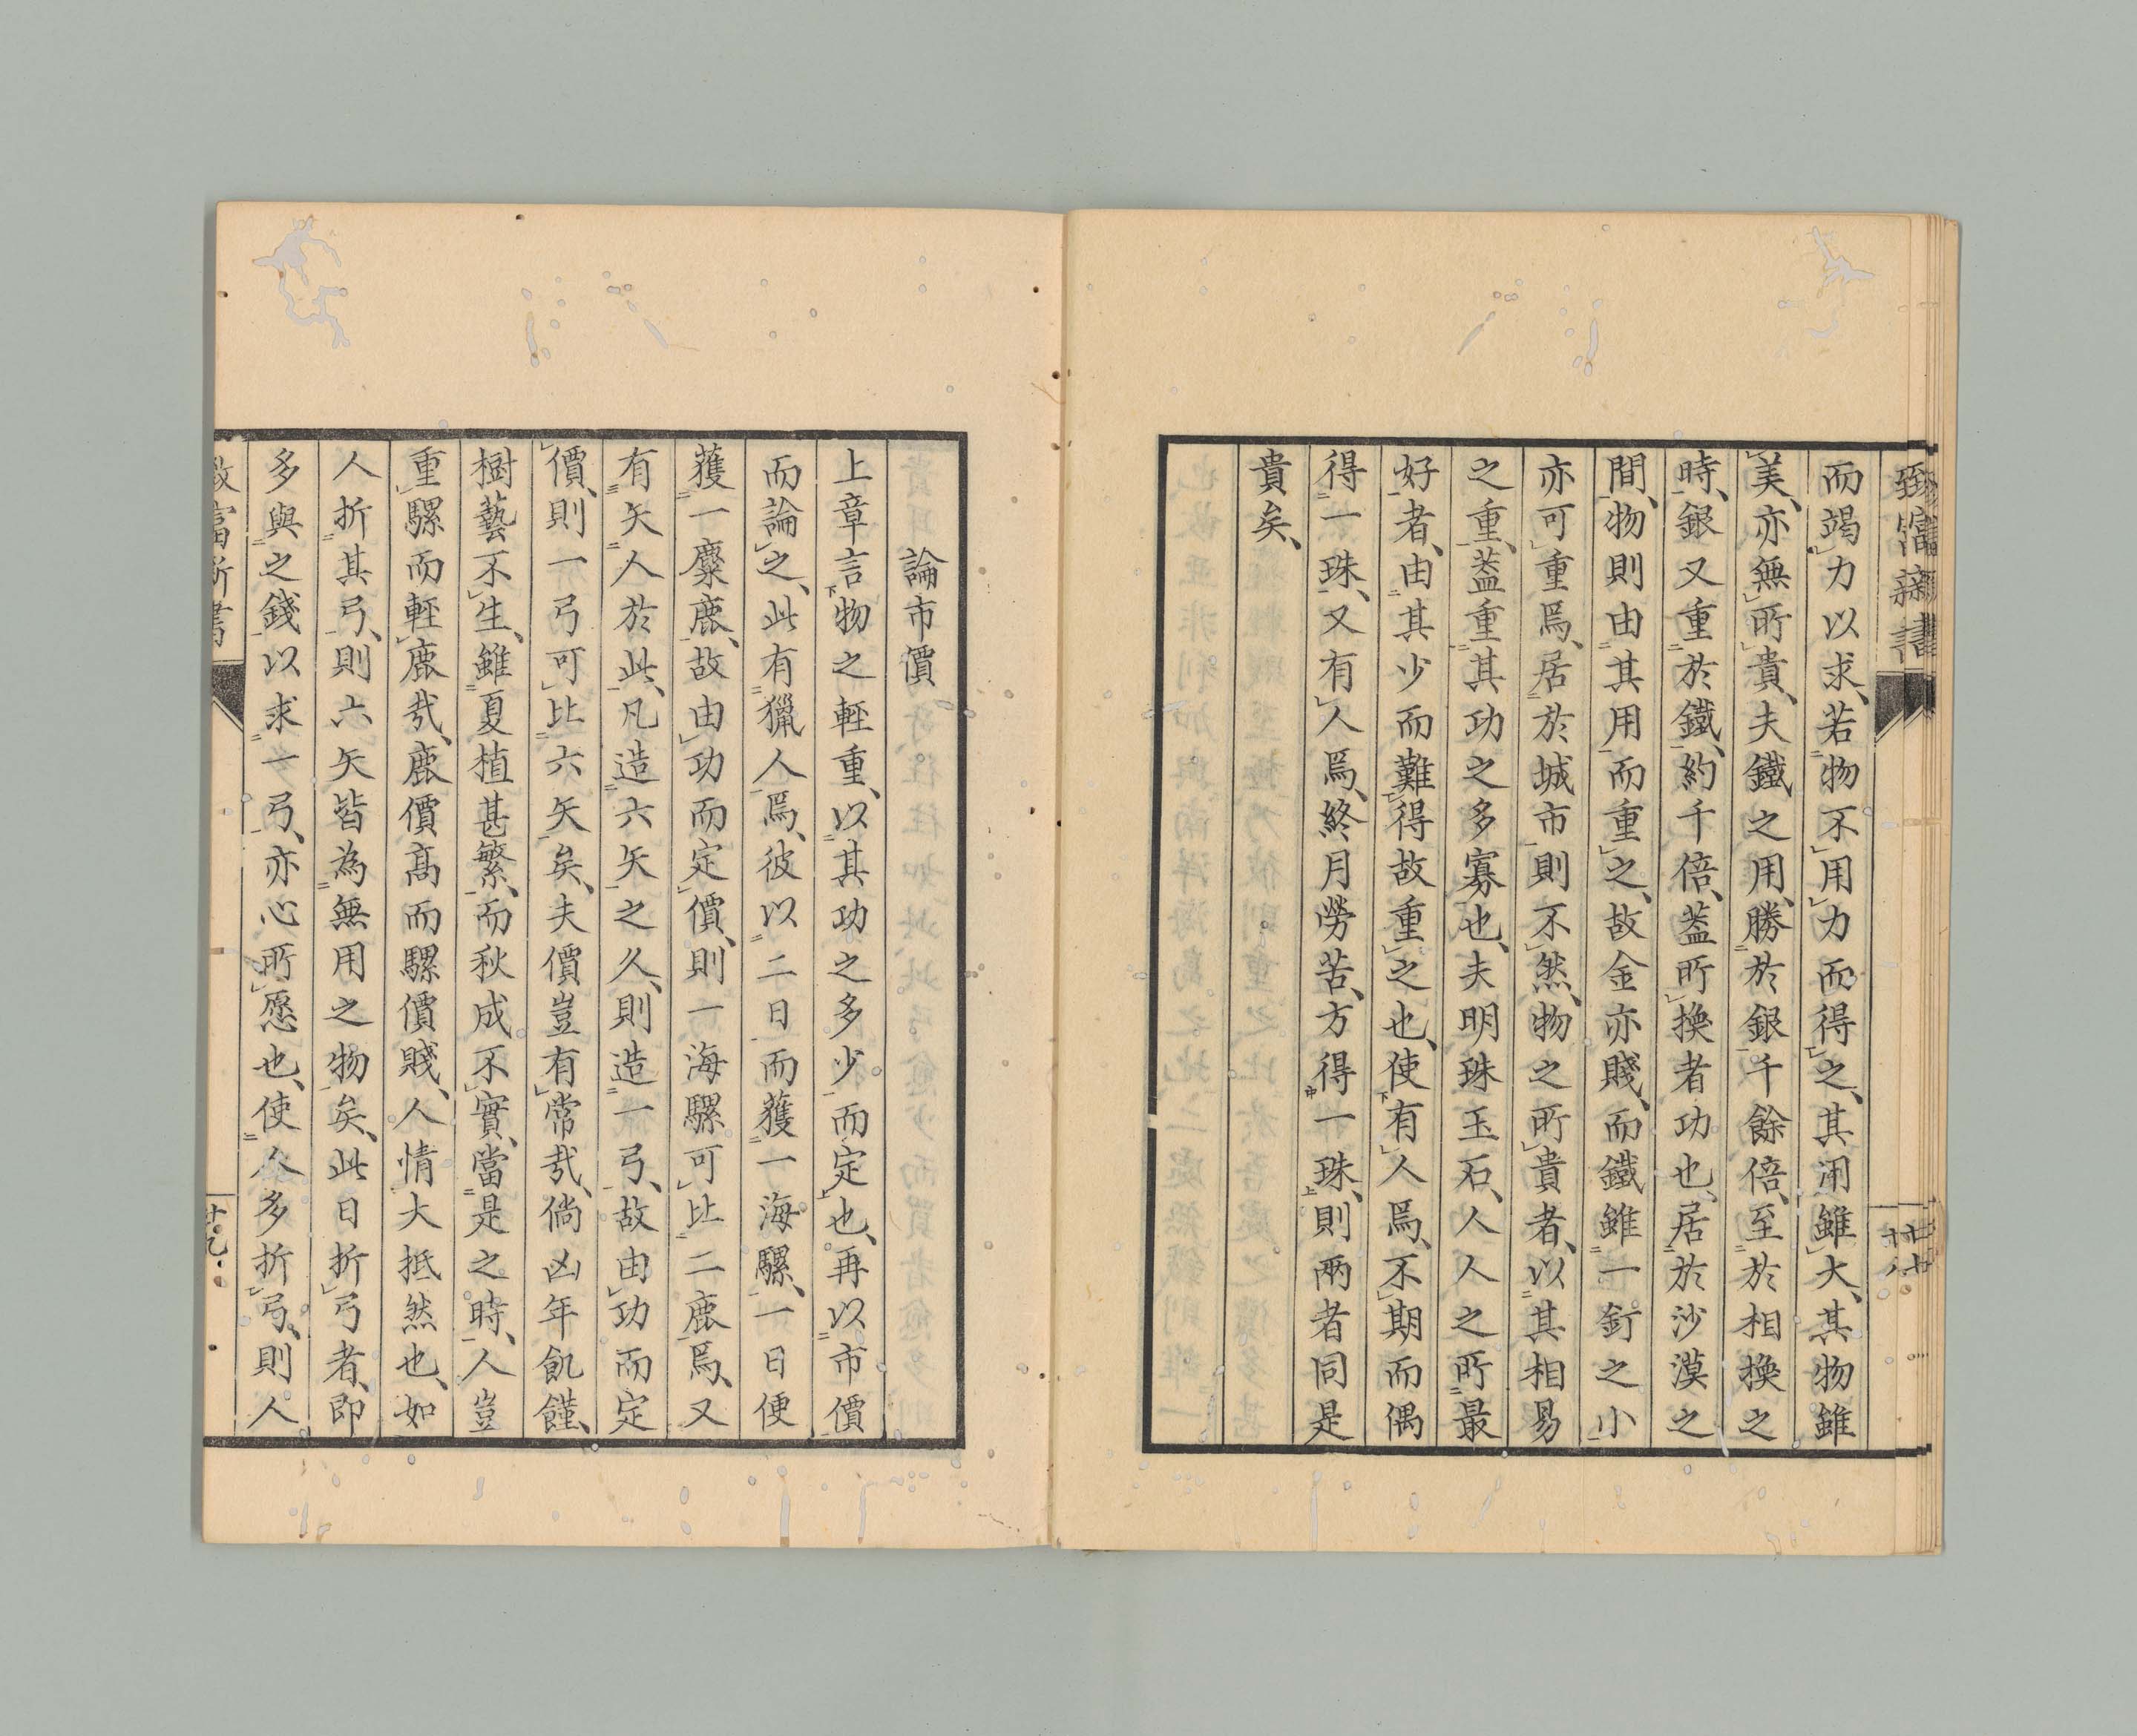 致富新書
而竭力以求、若物不用力而得之、其用雖大、其物雖
美、亦無所貴、夫鐵之用、勝於銀千餘倍、至於相換之
時、銀又重於鐵、約千倍、蓋所換者功也、居於沙漠之
間、物則由其用而重之、故金亦賤、而鐵雖一釘之小
亦可重焉、居於城市則不然、物之所貴者、以其相易
之重、蓋重其功之多寡也、夫明珠玉石、人人之所最
好者、由其少而難得故重之也、使有人焉、不期而偶
得一珠、又有人焉、終月勞苦、方得一珠、則兩者同是
貴矣、
論市價
上章言物之輕重、以其功之多少而定也、再以市價
而論之、此有獵人焉、彼以二日而獲一海騾、一日便
獲一麋鹿、故由功而定價、則一海騾可比二鹿焉、又
有矢人於此、凡造六矢之久、則造一弓、故由功而定
價、則一弓可比六矢矣、夫價豈有常哉、倘凶年飢饉、
樹藝不生、雖夏植甚繁、而秋成不實、當是之時、人豈
重騾而輕鹿哉、鹿價高而騾價賤、人情大抵然也、如
人折其弓、則六矢皆為無用之物矣、此日折弓者、即
多與之錢以求一弓、亦心所愿也、使人多折弓、則人
致富新書